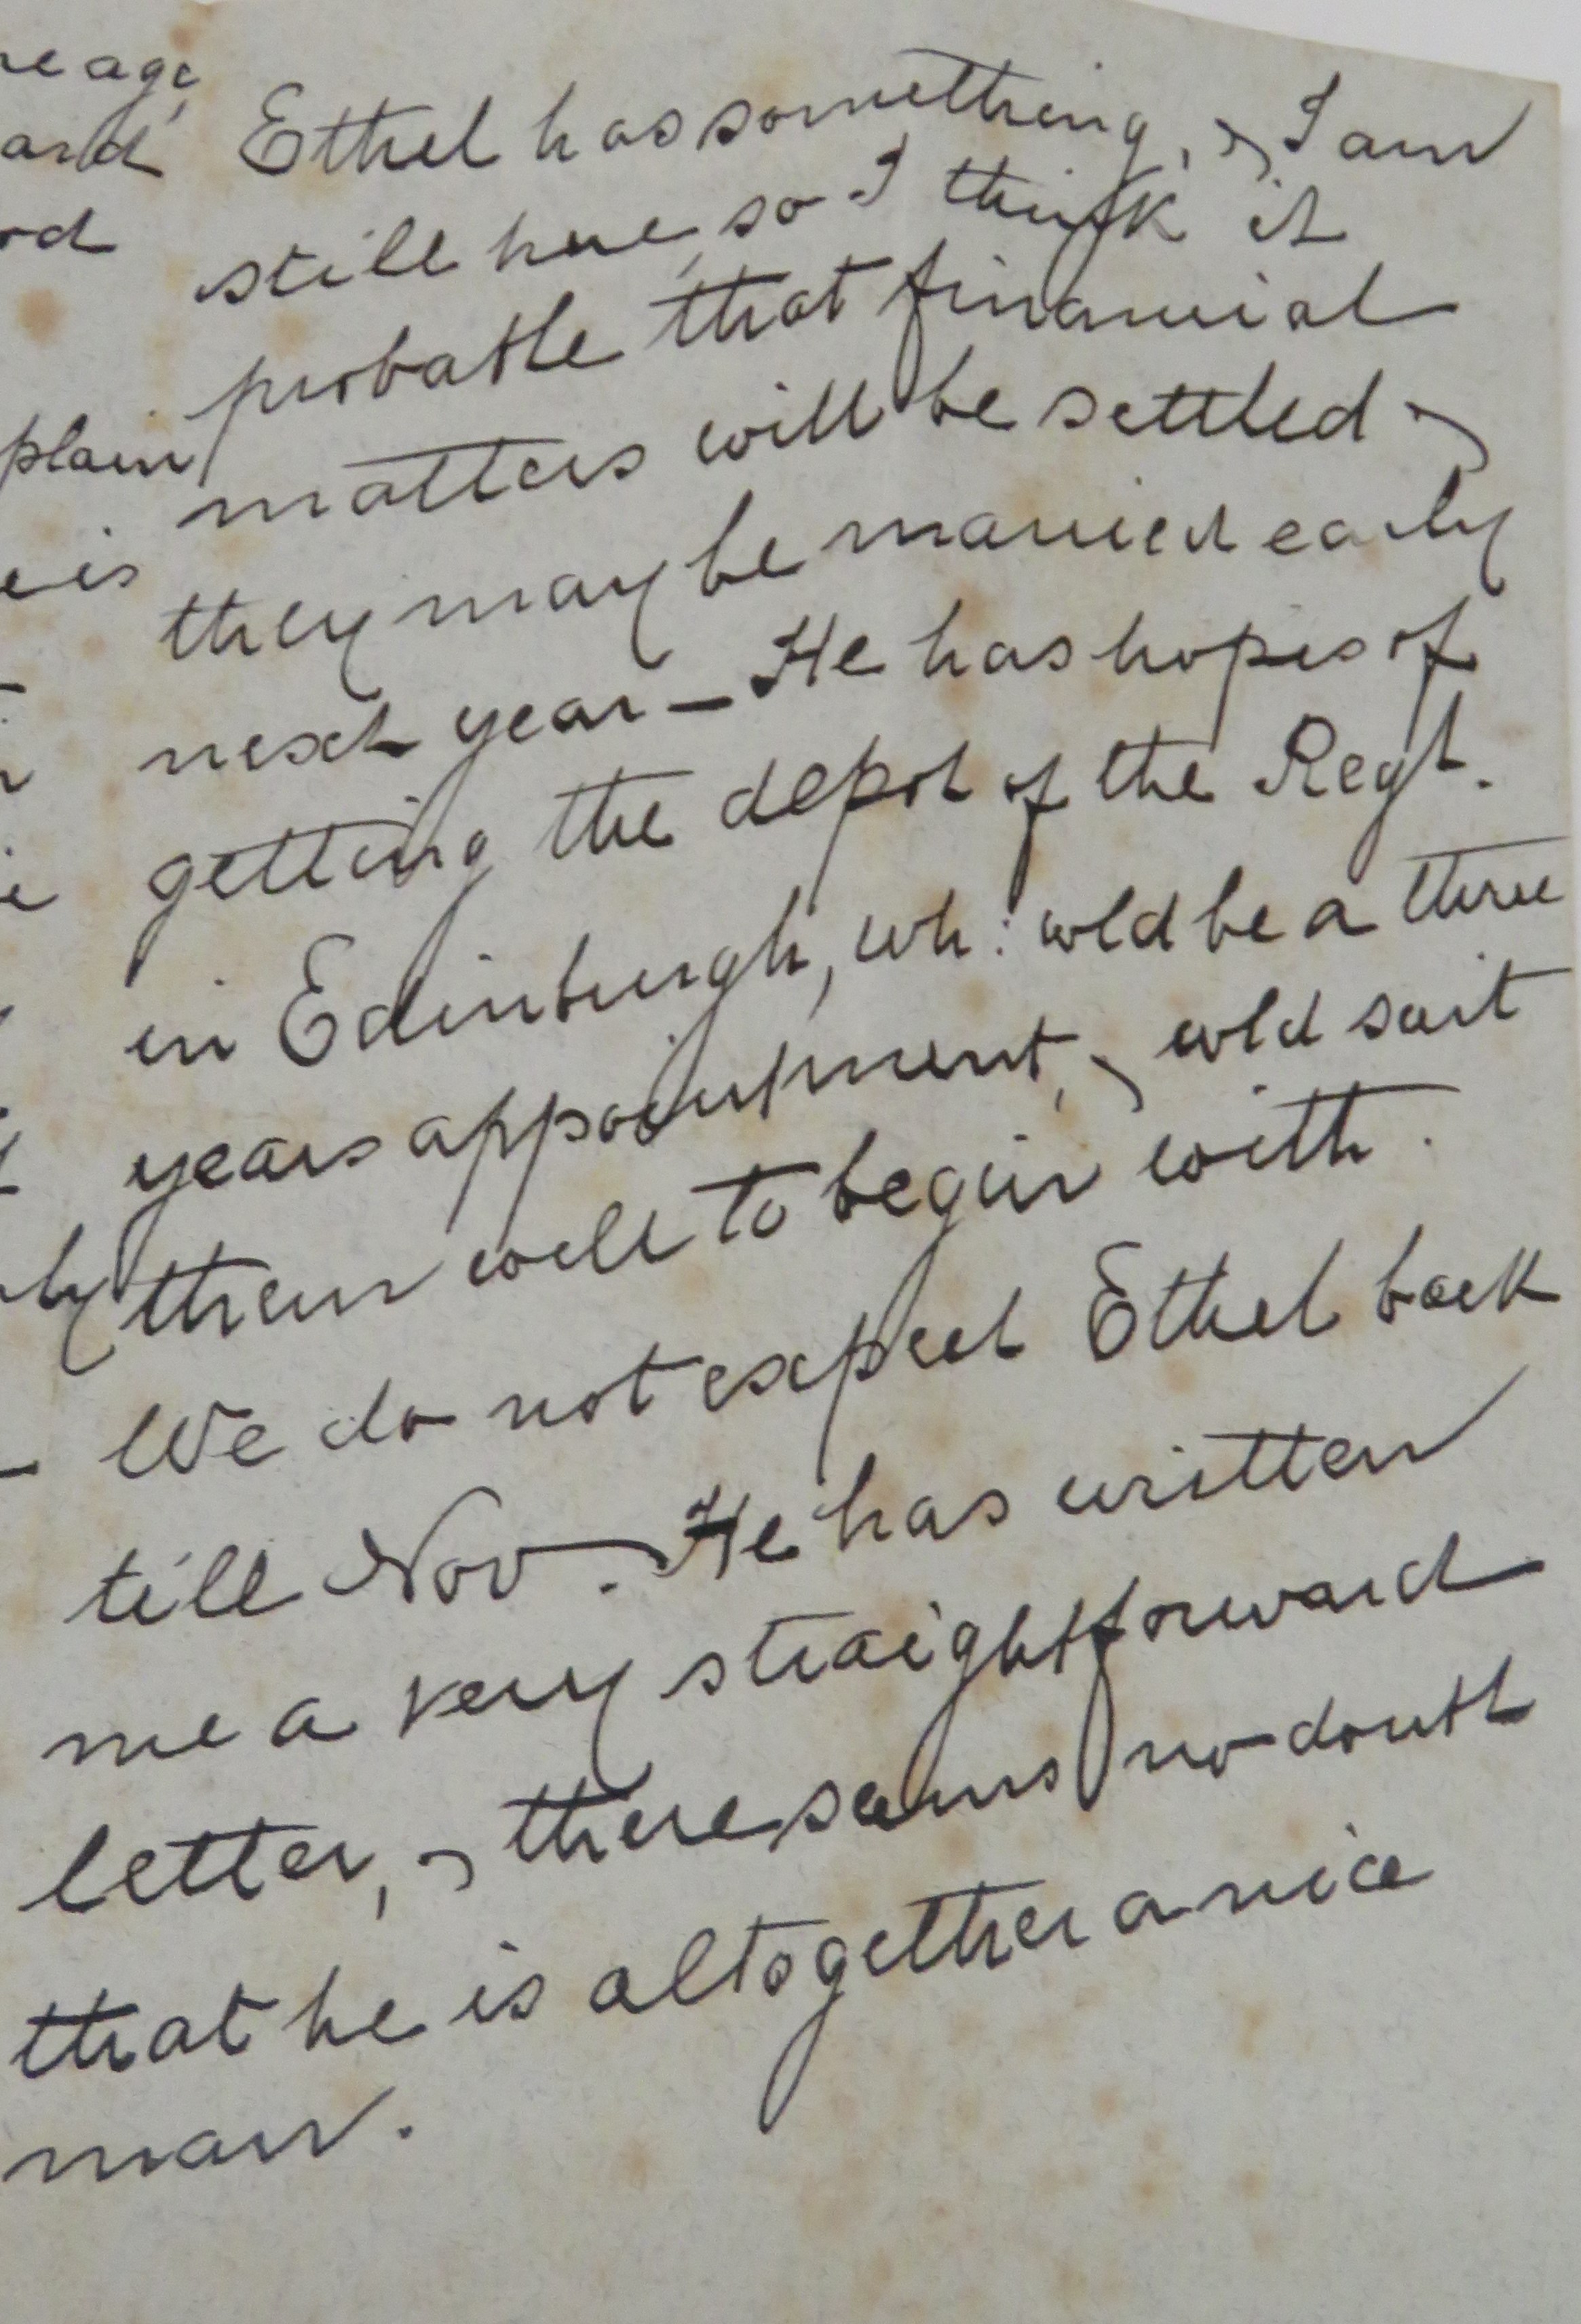 Ethel has something, & I am
still here, so I think it
probable that financial
matters will be settled &
they may be married early
next year — He has hopes of
getting the depot of the Regt.
in Edinburgh, wh: wld be a three
years appointment, & wld suit
them well to begin with.
We do not expect Ethel back
till Nov. He has written
me a very straightforward
letter, & there seems no doubt
that he is altogether a nice
man.
age,
and
plain
is